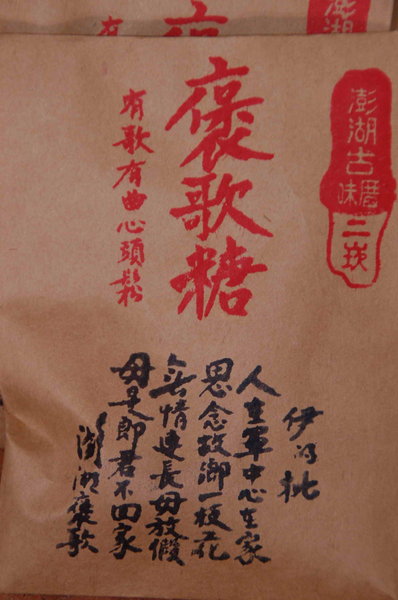 澎湖
澎湖古厝味
二崁
褒歌糖
有歌有曲心頭鬆
伊的批
人在軍中心在家
思念故鄉一枝花
無情連長毋放假
毋是郎君不回家
澎湖褒歌